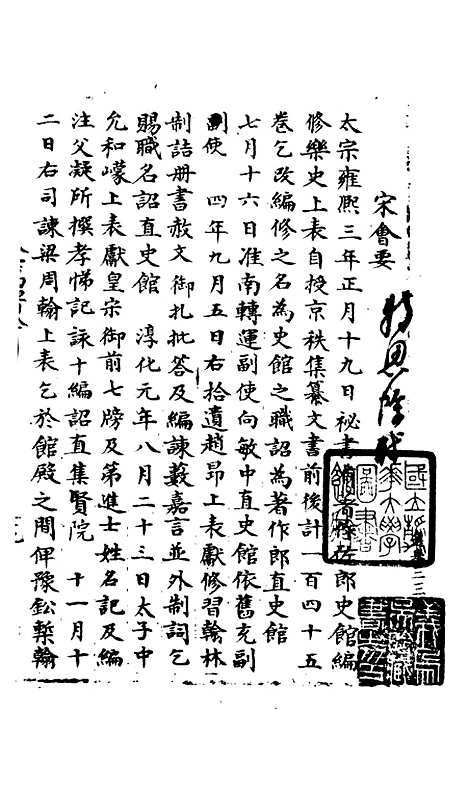 宋會要
特恩除職
太宗雍熙三年正月十九日秘書郎史館編
修樂史上表自授京秩集纂文書前後計一百四十五
卷乞改編修之名為史館之職詔為著作郎直史館
七月十六日淮南轉運副使向敏中直史館依舊充副
副使 四年九月五日右拾遺趙昂上表獻修習翰林
制誥册書赦文御扎批答及編諫藪嘉言並外制詞乞
賜職名詔直史館 淳化元年八月二十三日太子中
允和㠓上表獻皇宗御前七牓及第進士姓名記及編
注父凝所撰孝悌記詠十編詔直集賢院 十一月十
二日右司諫梁周翰上表乞於館殿之間俾豫鈆槧翰